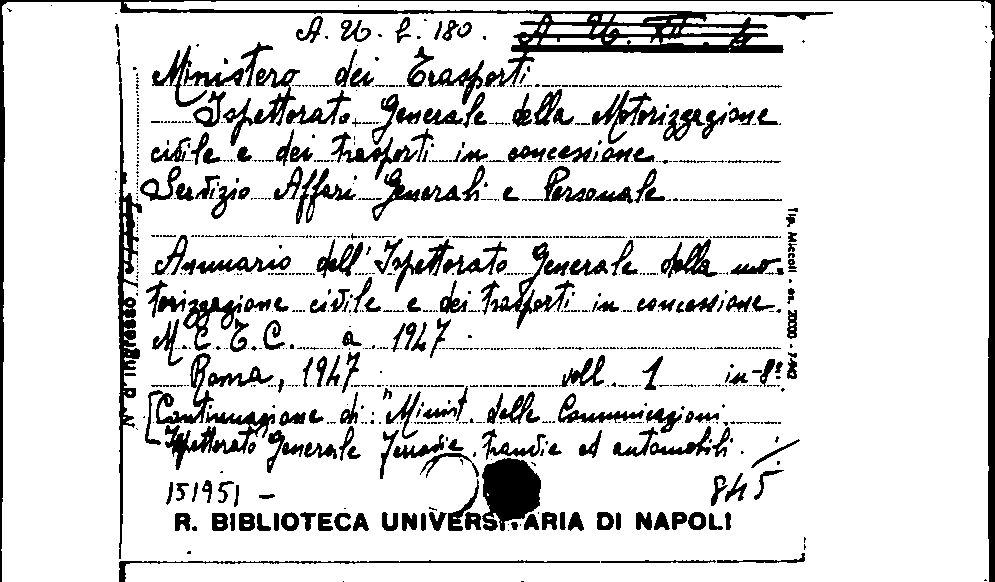 A. U. L. 180. A. U. XII. 4
Ministero dei Trasporti
Ispettorato Generale della Motorizzazione
civile e dei trasporti in concessione.
Servizio Affari Generali e Personale
Annuario dell'Ispettorato Generale della mo-
torizzazione civile e dei trasporti in concessione.
M.C.T.C. a. 1947
Roma, 1947 voll. 1 in-8°
[Continuazione di: "Minist. delle Comunicazioni.
Ispettorato Generale Ferrovie, tranvie ed automobili.
151951 - 845
R. BIBLIOTECA UNIVERSITARIA DI NAPOLI
N. d'ingresso
Tip. Miccoli - es. 20000 - 7-942